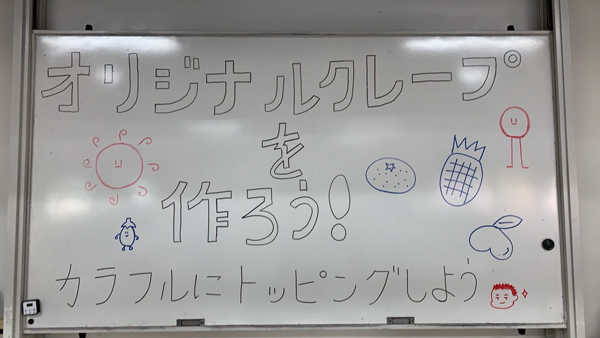 オリジナルクレープ
を
作ろう!
カラフルにトッピングしよう